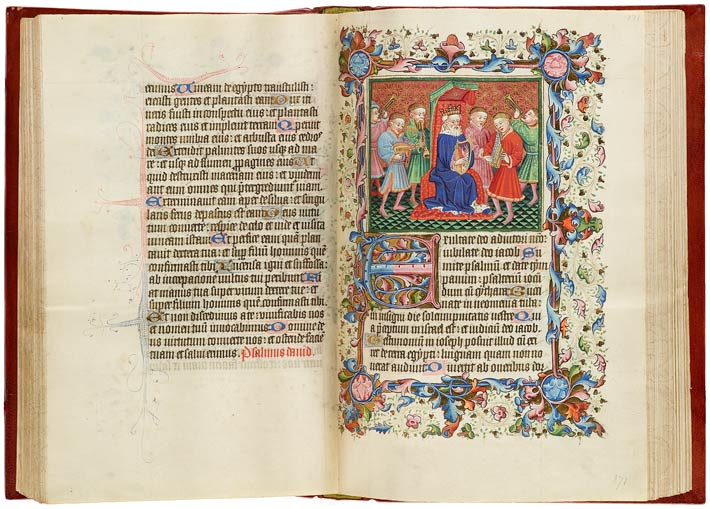 erimus Uineam de egypto transtulisti:
eiecisti gentes et plantasti eam Dux iti
neris fuisti in conspectu eius: et plantasti
radices eius et impleuit terram Operuit
montes umbra eius: et arbusta eius cedros
dei Extendit palmites suos usq ad ma
re: et usq ad flumen propagines eius Ut
quid destruxisti maceriam eius: et uindemi
ant eam omnes qui pretergrediuntur uiam
Exterminauit eam aper de silua: et singu
laris ferus depastus est eam Deus uirtu
tum conuertere: respice de celo et uide et uisita
uineam istam Et perfice eam quam plan
tauit dextera tua: et super filium hominis
quem confirmasti tibi Incensa igni et suffossa:
ab increpatione uultus tui peribunt Fi
at manus tua super uirum dextere tue: et
super filium hominis quem confirmasti tibi
Et non discedimus a te: uiuificabis nos
et nomen tuum inuocabimus Domine de
us uirtutum conuerte nos: et ostende faci
em tuam et salui erimus. Psalmus dauid.
Exultate deo adiutori nostro:
iubilate deo iacob Su
mite psalmum et date tim
panum: psalterium iocun
dum cum cythara Bucci
nate in neomenia tuba
in insigni die solempnitatis uestre Qui
a preceptum in israel est: et iudicium deo iacob
Testimonium in ioseph posuit illud cum exi
ret de terra egypti: linguam quam non no
uerat audiuit Diuertit ab oneribus dor
171